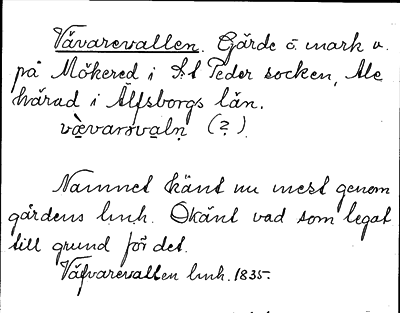 Vävarevallen. Gärde o. mark v.
på Mökered i S:t Peder socken, Ale
härad i Älfsborgs län.
(?)
Namnet känt nu mest genom
gårdens lmh. Okänt vad som legat
till grund för det.
Väfvarevallen lmh. 1835.